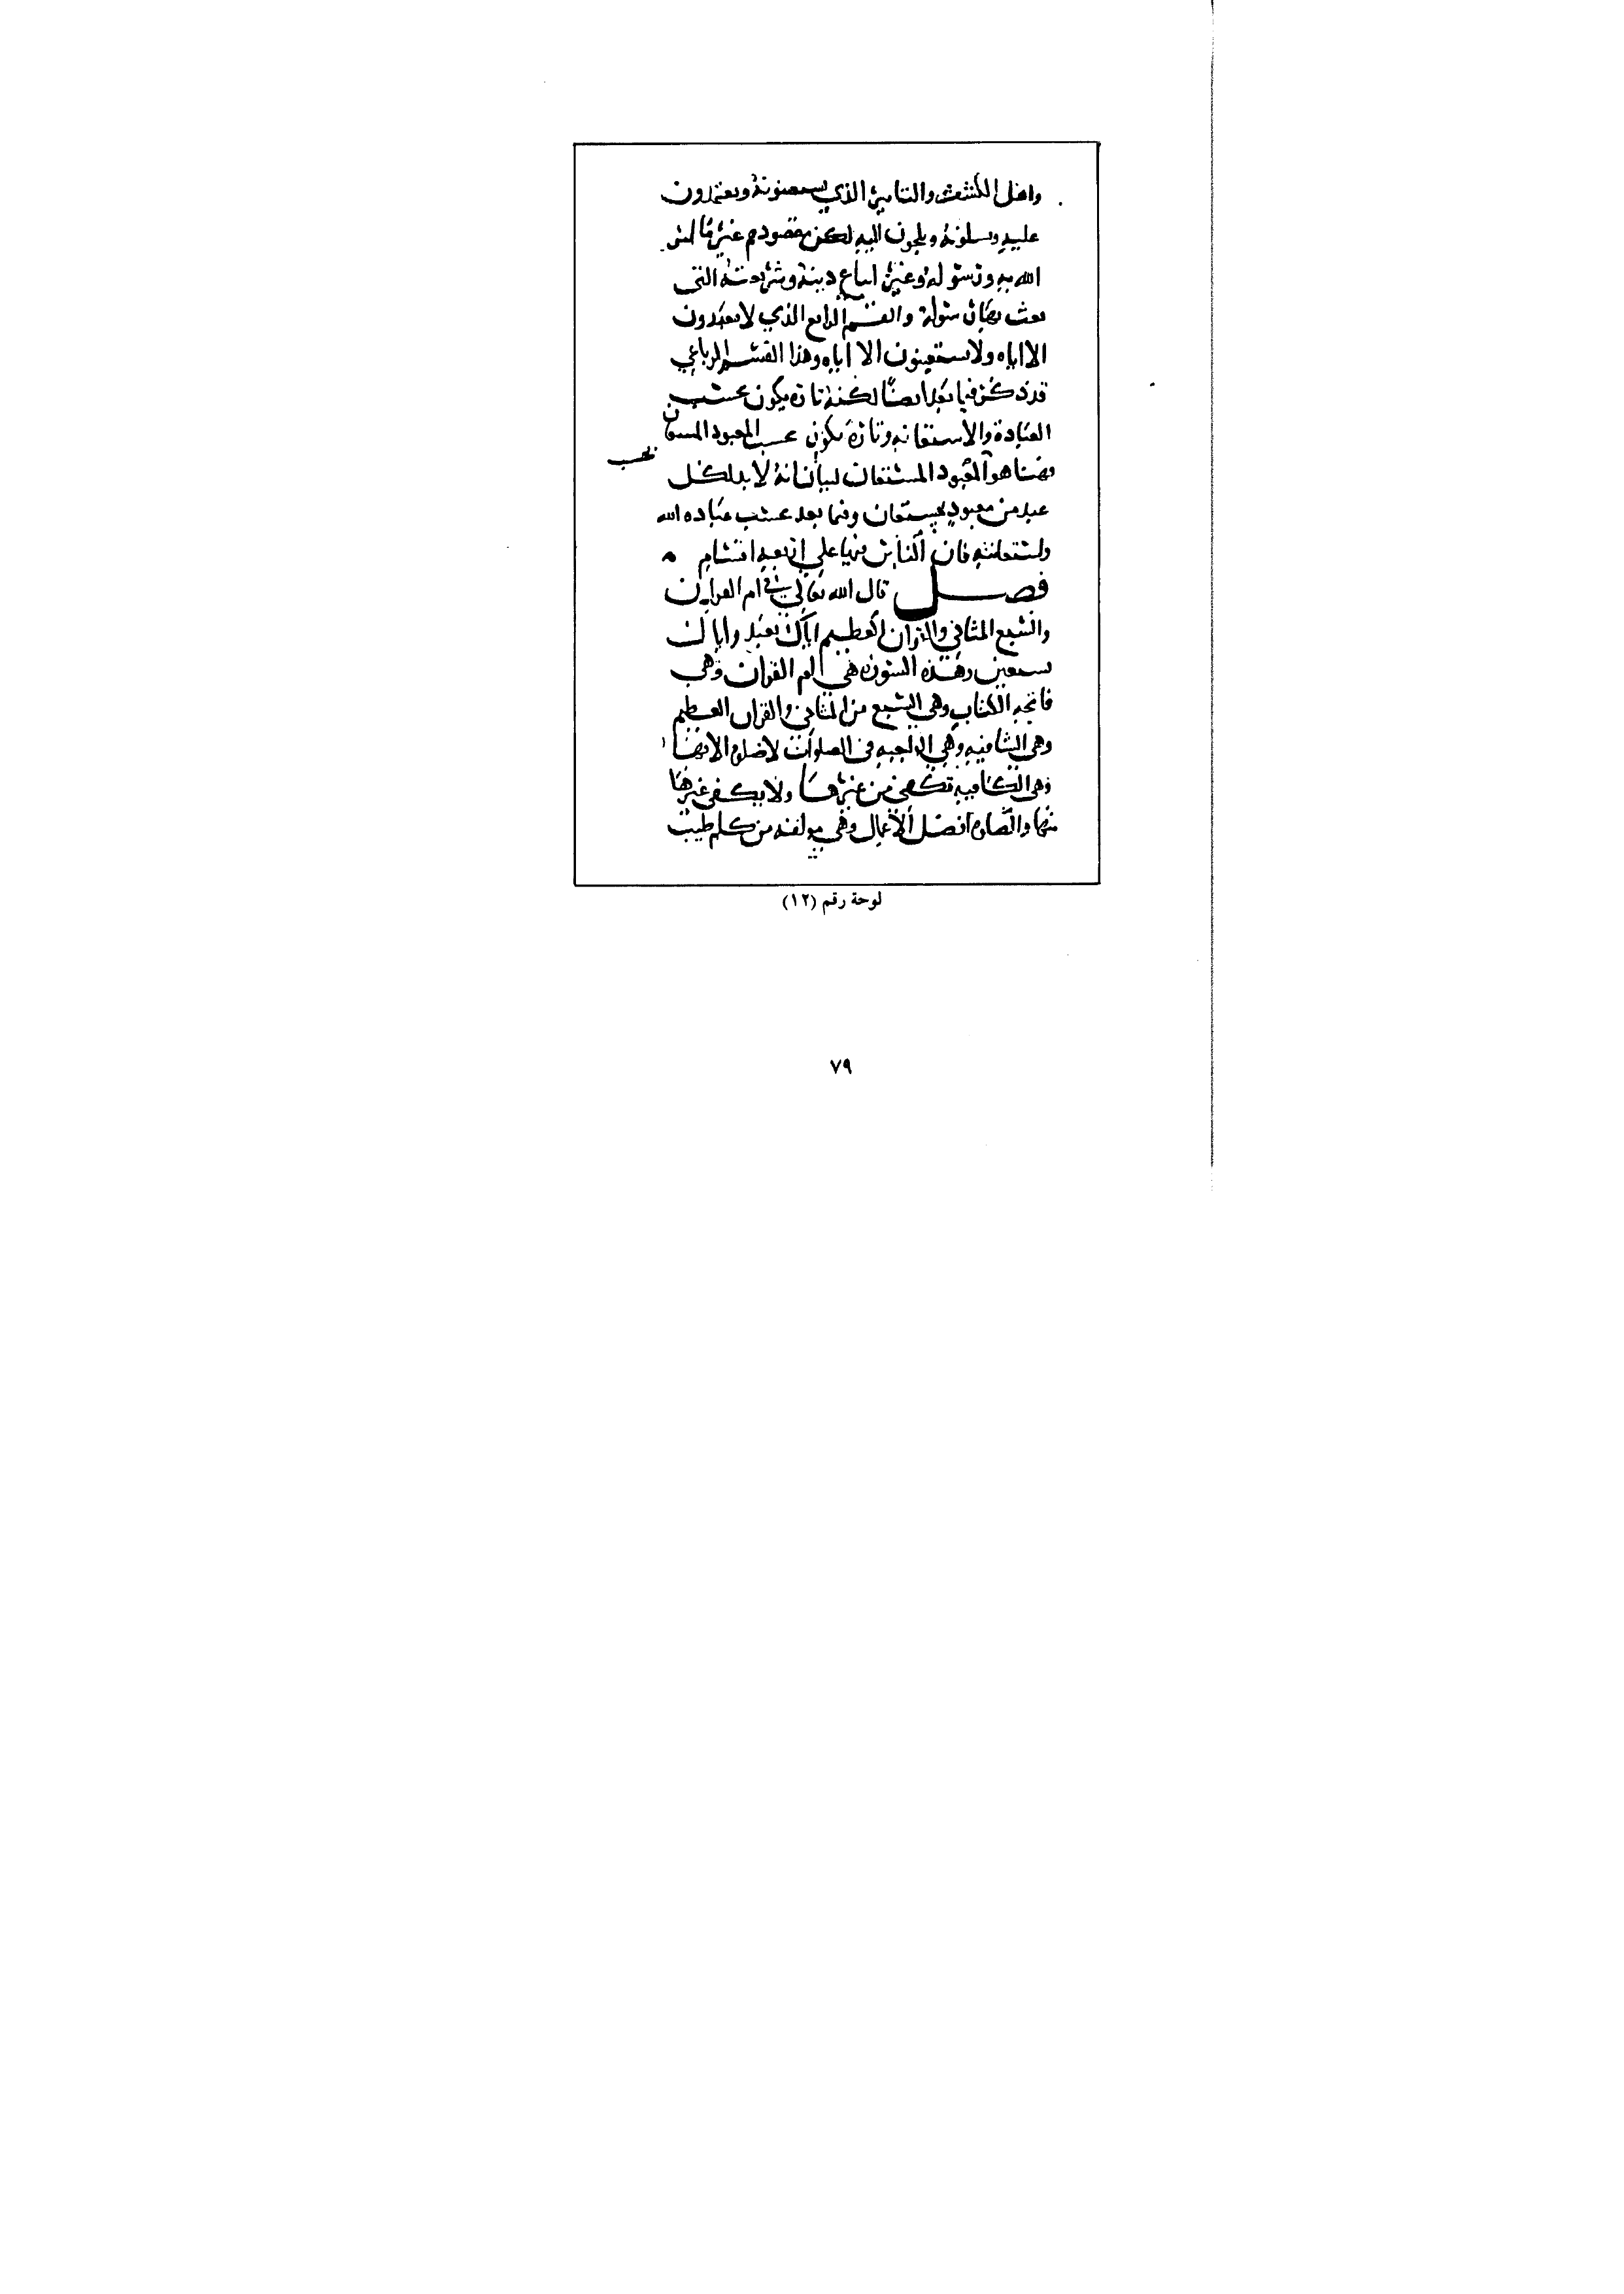 واهل الكشف والتاثير الذي يستعينونه ويعتمدون
عليه ويسلونه ويلجون اليه لكن مقصودهم غير ما امر
الله به ورسوله وغير اتباع دينه وشريعته التي
بعث بها رسوله والقسم الرابع الذي لا يعبدون
الا اياه ولا يستعينون الا اياه وهذا القسم الرباعي
قد ذكر فيما بعد ايضا لكنه تارة يكون بحسب
العبادة والاستعانه وتارة يكون بحسب المعبود المستعان
فهنا هو المعبود المستعان لبيان انه لا بد لكل
بحسب
عبد من معبود مستعان وفيما بعد بحسب عباده الله
واستعانته فان الناس فيها علي اربعه اقسام ه
فصل قال الله تعالي في ام القران
والسبع المثاني والقران العظيم اياك نعبد واياك
نستعين وهذه السوره هي ام القران وهي
فاتحه الكتاب وهي السبع من المثاني والقران العظيم
وهي الشافيه وهي الواجبه في الصلوات لا صلوه الا بها
وهي الكافيه تكفي من غيرها ولا يكفي غيرها
عنها والصلوه افضل الاعمال وهي مولفه من كلم طيب
لوحة رقم (١٢)
٧٩